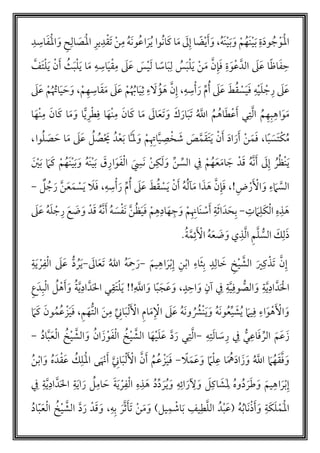 الْمَوْجُودَةِ بَيْنَهُمْ وَبَيْنَهُ، وَأَيْضًا إِلَى مَا كَانُوا يُرَاعُونَهُ مِنْ تَقْدِيرِ الْمَصَالِحِ وَالْمَفَاسِدِ
حِفَاظًا عَلَى الدَّعْوَةِ، فَإِنَّ مَنْ يَلْبَسُ لِبَاسًا لَيْسَ عَلَى مِقْيَاسِهِ مَا يَلْبَثُ أَنْ يَتَلَفَّفَ
عَلَى رِجْلِهِ فَيَسْقُطَ عَلَى أُمِّ رَأْسِهِ، إِنَّ هَؤُلَاءِ ثِيَابُهُمْ عَلَى مَقَاسِهِمْ، وَحَيَاتُهُمْ عَلَى
مَوَاهِبِهِمُ الَّتِي أَعْطَاهُمُ اللهُ تَبَارَكَ وَتَعَالَى مَا كَانَ مِنْهَا فِطْرِيًّا وَمَا كَانَ مِنْهَا
مُكْتَسَبًا، فَمَنْ أَرَادَ أَنْ يَتَقَمَّصَ شَخْصِيَّاتِهِمْ وَلَمَّا بَعْدُ يُحَصِّلْ عَلَى مَا حَصَلُوا،
يَنْظُرْ إِلَى أَنَّهُ قَدْ جَامَعَهُمْ فِي السِّنِّ وَلَكِنْ نَسِيَ الْفَوَارِقَ بَيْنَهُ وَبَيْنَهُمْ كَمَا بَيْنَ
السَّمَاءِ وَالْأَرْضِ!، فَإِنَّ هَذَا مَآلُهُ أَنْ يَسْقُطَ عَلَى أُمِّ رَأْسِهِ، فَلَا يَسْمَعَنَّ رَجُلٌ -
هَذِهِ الْكَلِمَاتِ- بِحَدَاثَةِ أَسْنَانِهِمْ وَجِهَادِهِمْ فَيَظُنَّ نَفْسَهُ أَنَّهُ قَدْ وَضَعَ رِجْلَهُ عَلَى
ذَلِكَ السُّلَّمِ الَّذِي وَضَعَهُ الْأَئِمَّةُ.
إِنَّ تَذْكِيرَ الشَّيْخِ خَالِدٍ بِثَأْءِ ابْنِ إِبْرَاهِيمَ -رَحِمَهُ اللهُ تَعَالَى- يَرُدُّ عَلَى الْفِرْيَةِ
الْخَالِدِيَّةِ وَالصُّوفِيَّةِ فِي آنٍ وَاحِدٍ، وَعَجَبًا وَاللهِ!! يَلْتَقِي الْخَالِدِيَّةُ وَأَهْلُ الْبِدَعِ
وَالْأَهْوَاءِ فِيمَا يُشَيِّعُونَهُ وَيَنْشُرُونَهُ عَلَى الْإِمَامِ الْأَلْبَانِيِّ مِنَ التُّهَمِ، فَيَزْعُمُونَ كَمَا
زَعَمَ الرِّفَاعِيُّ فِي رِسَالَتِهِ -الَّتِي رَدَّ عَلَيْهَا الشَّيْخُ الْفَوْزَانُ وَالشَّيْخُ الْعَبَّادُ-
وَفَّقَهُمَا اللهُ وَزَادَهُمَا عِلْمًا وَعَمَلًا- يَزْعُمُ أَنَّ الْأَلْبَانِيَّ أَنْهَى الْمُلْكُ عَقْدَهُ وَابْنُ
إِبْرَاهِيمَ وَطَرَدُوهُ لِمَشَاكِلَ وَلِآرَائِهِ، وَيُرَدِّدُ هَذِهِ الْفِرْيَةَ حَامِلُ رَايَةِ الْخَالِدِيَّةِ فِي
الْمَمْلَكَةِ، وَأَذْنَابُهُ (عَبْدُ اللَّطِيفِ بَاشْمِيل) وَمَنْ تَأَثَّرَ بِهِ، وَقَدْ رَدَّ الشَّيْخُ الْعَبَّادُ